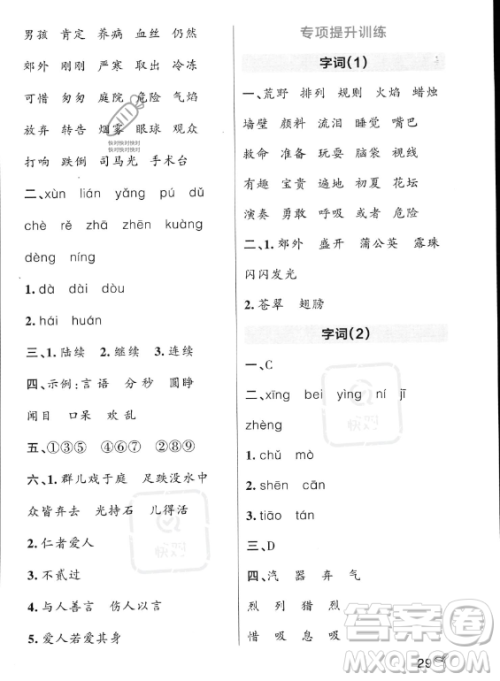 男孩 肯定 养病 血丝 仍然
郊外 刚刚 严寒 取出 冷冻
可惜 匆匆 庭院 危险 气焰
放弃 转告 烟雾 眼球 观众
打响 跌倒 司马光 手术台
二、xùn lián yǎng pú dǔ
chè rě zhā zhēn kuàng
dèng níng
1. dà dài dòu
2. hái huán
三、1. 陆续 2. 继续 3. 连续
四、示例：言语 分秒 圆睁
闻目 口呆 欢乱
五、①③⑤ ④⑥⑦ ②⑧⑨
六、1. 群儿戏于庭 足跌没水中
众皆弃去 光持石 儿得活
2. 仁者爱人
3. 不贰过
4. 与人善言 伤人以言
5. 爱人若爱其身
专项提升训练
字词(1)
一、荒野 排列 规则 火焰 蜡烛
墙壁 颜料 流泪 睡觉 嘴巴
救命 准备 玩耍 脑袋 视线
有趣 宝贵 遗迹 初夏 花坛
演奏 勇敢 呼吸 或者 危险
二、1. 郊外 盛开 蒲公英 露珠
闪闪发光
2. 苍翠 翅膀
字词(2)
一、C
二、xīng bei yìng ní jī
zhèng
1. chǔ mò
2. shēn cān
3. tiāo tán
三、D
四、汽 器 弃 气
烈 列 猎 烈
惜 吸 息 吸
29
答案圈
MXQE.COM